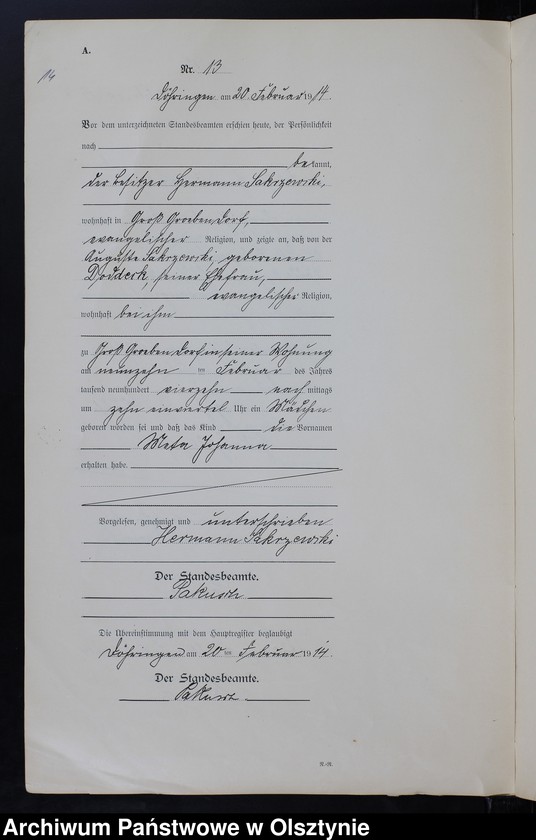 A.
14
Nr. 13
Döhringen am 20 Februar 1914.
Vor dem unterzeichneten Standesbeamten erschien heute, der Persönlichkeit
nach
bekannt,
der Besitzer Hermann Sakrzewski,
wohnhaft in Groß Groeben Dorf,
evangelischer Religion, und zeigte an, daß von der
Auguste Sakrzewski, geborenen
seiner Ehefrau,
evangelischer Religion,
wohnhaft bei ihm
zu Groß Groeben Dorf in seiner Wohnung
am neunzehn ten Februar des Jahres
tausend neunhundert vierzehn nach mittags
um zehn einviertel Uhr ein Mädchen
geboren worden sei und daß das Kind die Vornamen
Meta Johanna
erhalten habe.
Vorgelesen, genehmigt und unterschrieben
Hermann Sakrzewski
Der Standesbeamte.
Die Übereinstimmung mit dem Hauptregister beglaubigt
Döhringen am 20 ten Februar 1914.
Der Standesbeamte.
R.-R.
Archiwum Państwowe w Olsztynie